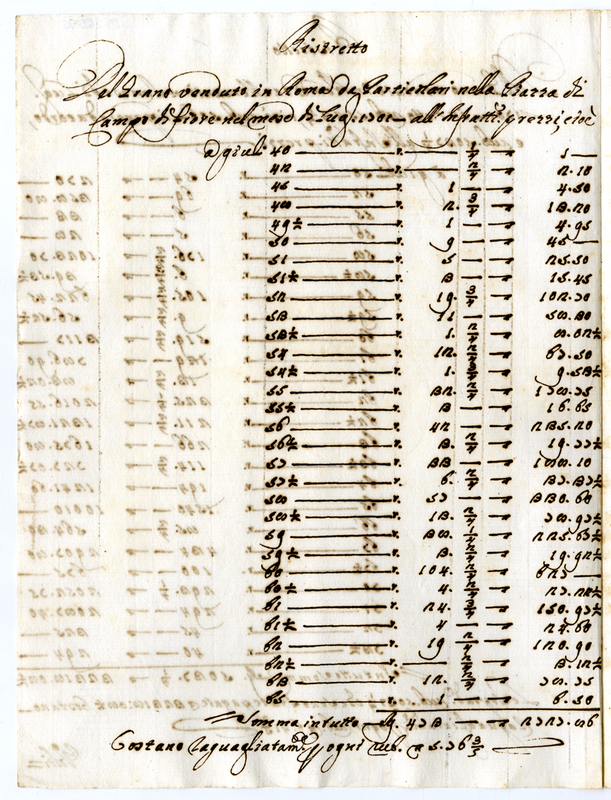 Ristretto
Del Grano venduto in Roma da Particolari nella Piazza di
Campo di fiore nel mese di Lug. 1701 all' infratti prezzi, cioè
a giul 40 — r. — 1/4 — 1 —
42 — r. — 2/4 — 2.10
45 — r. 1 — 4.50
48 — r. 2. 3/4 — 13.20
49½ — r. 1 — 4.95
50 — r. 9 — 45 —
51 — r. 5 — 25.50
51½ — r. 3 — 15.45
52 — r. 19. 3/4 — 102.70
53 — r. 11 — 58.30
53½ — r. 1. 2/4 — 8.02½
54 — r. 12. 2/4 — 67.50
54½ — r. 1. 3/4 — 9.53½
55 — r. 32. 2/4 — 178.75
55½ — r. 3 — 16.65
56 — r. 42 — 235.20
56½ — r. 3. 2/4 — 19.77½
57 — r. 33 — 188.10
57½ — r. 6. 2/4 — 37.37½
58 — r. 57 — 330.60
58½ — r. 13. 2/4 — 78.97½
59 — r. 38. 1/4 — 225.67½
59½ — r. 3. — 19.92½
60 — r. 104. 2/4 — 627 —
60½ — r. 4. 2/4 — 27.22½
61 — r. 24. 3/4 — 150.97½
61½ — r. 4 — 24.60
62 — r. 19 2/4 — 120.90
62½ — r. — 2/4 — 3.12½
63 — r. 12. 2/4 — 78.75
65 — r. 1 — 6.50
Somma in tutto — 473 — 2727.86
Costano ragguagliatam.te p ogni rub. a 5.76 3/5